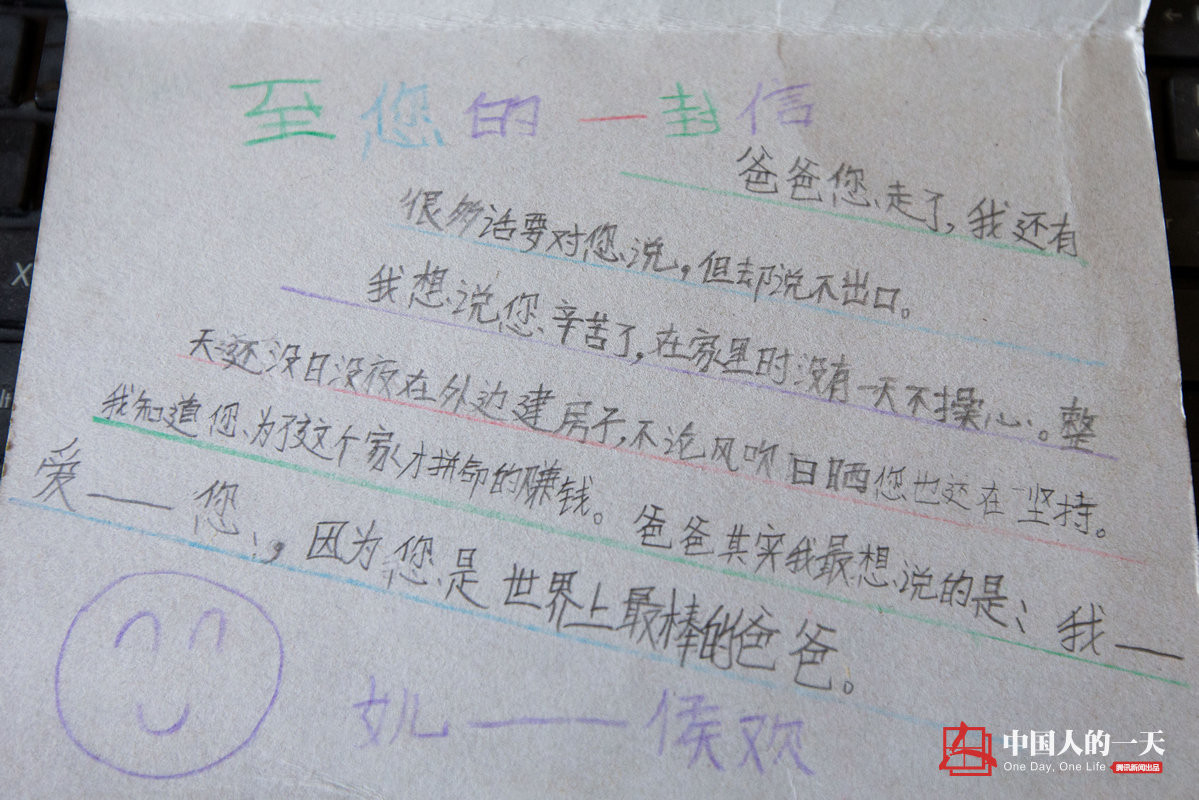 至您的一封信
爸爸您走了,我还有
很多话要对您说,但却说不出口。
我想说您辛苦了,在家里时没有一天不操心。整
天还没日没夜在外边建房子,不论风吹日晒您也还在坚持。
我知道您为了这个家才拼命的赚钱。爸爸其实我最想说的是:我——
爱——您,因为您是世界上最棒的爸爸。
女儿——侯欢
中国人的一天
One Day, One Life
腾讯新闻出品
X